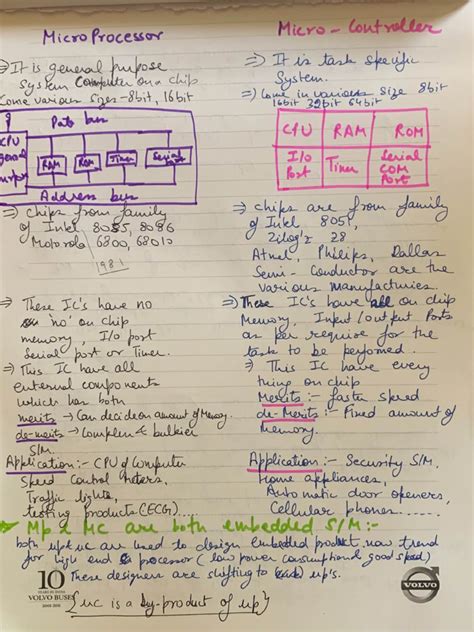 MicroProcessor
⇒ It is general purpose
System Computer on a chip
Come various sizes - 8bit, 16bit
Data bus
CPU
general
purpos
RAM
ROM
Timer
Serial
Port
Address bus
⇒ Chips from family
of Intel 8085, 8086
Motorola 6800, 68010
1981
⇒ These IC's have no
'no' on chip
memory, I/o port
Serial port or Timer.
⇒ This IC have all
external components
which has both
merits → Can decide on amount of Memory.
de-merits → Complex & bulkier
S/M.
Application :- CPU of Computer
Speed Control Meters,
Traffic lights,
testing products (ECG)...
Micro - Controller
⇒ It is task specific
System.
⇒ Come in various size 8bit
16bit 32bit 64bit
CPU RAM ROM
I/o Port
Timer
Serial COM Port
⇒ Chips are from family
of Intel 8051,
Zilog's Z8
Atmel, Philips, Dallas
Semi-Conductor are the
various manufacturies.
⇒ These IC's have all on chip
Memory, Input/output Ports
as per require for the
task to be perfomed.
⇒ This IC have every
thing on chip
Merits :- faster speed
de-Merits :- Fixed amount of
Memory.
Application :- Security S/M,
Home appliances,
Automatic door openers,
Cellular phones......
Mp & MC are both embedded S/M :-
both up & uc are used to design embedded product now trend
for high end processor (low power consumption & good speed)
These designers are shifting to up's.
{uc is a by-product of up}
10
YEARS IN INDIA
VOLVO BUSES
VOLVO